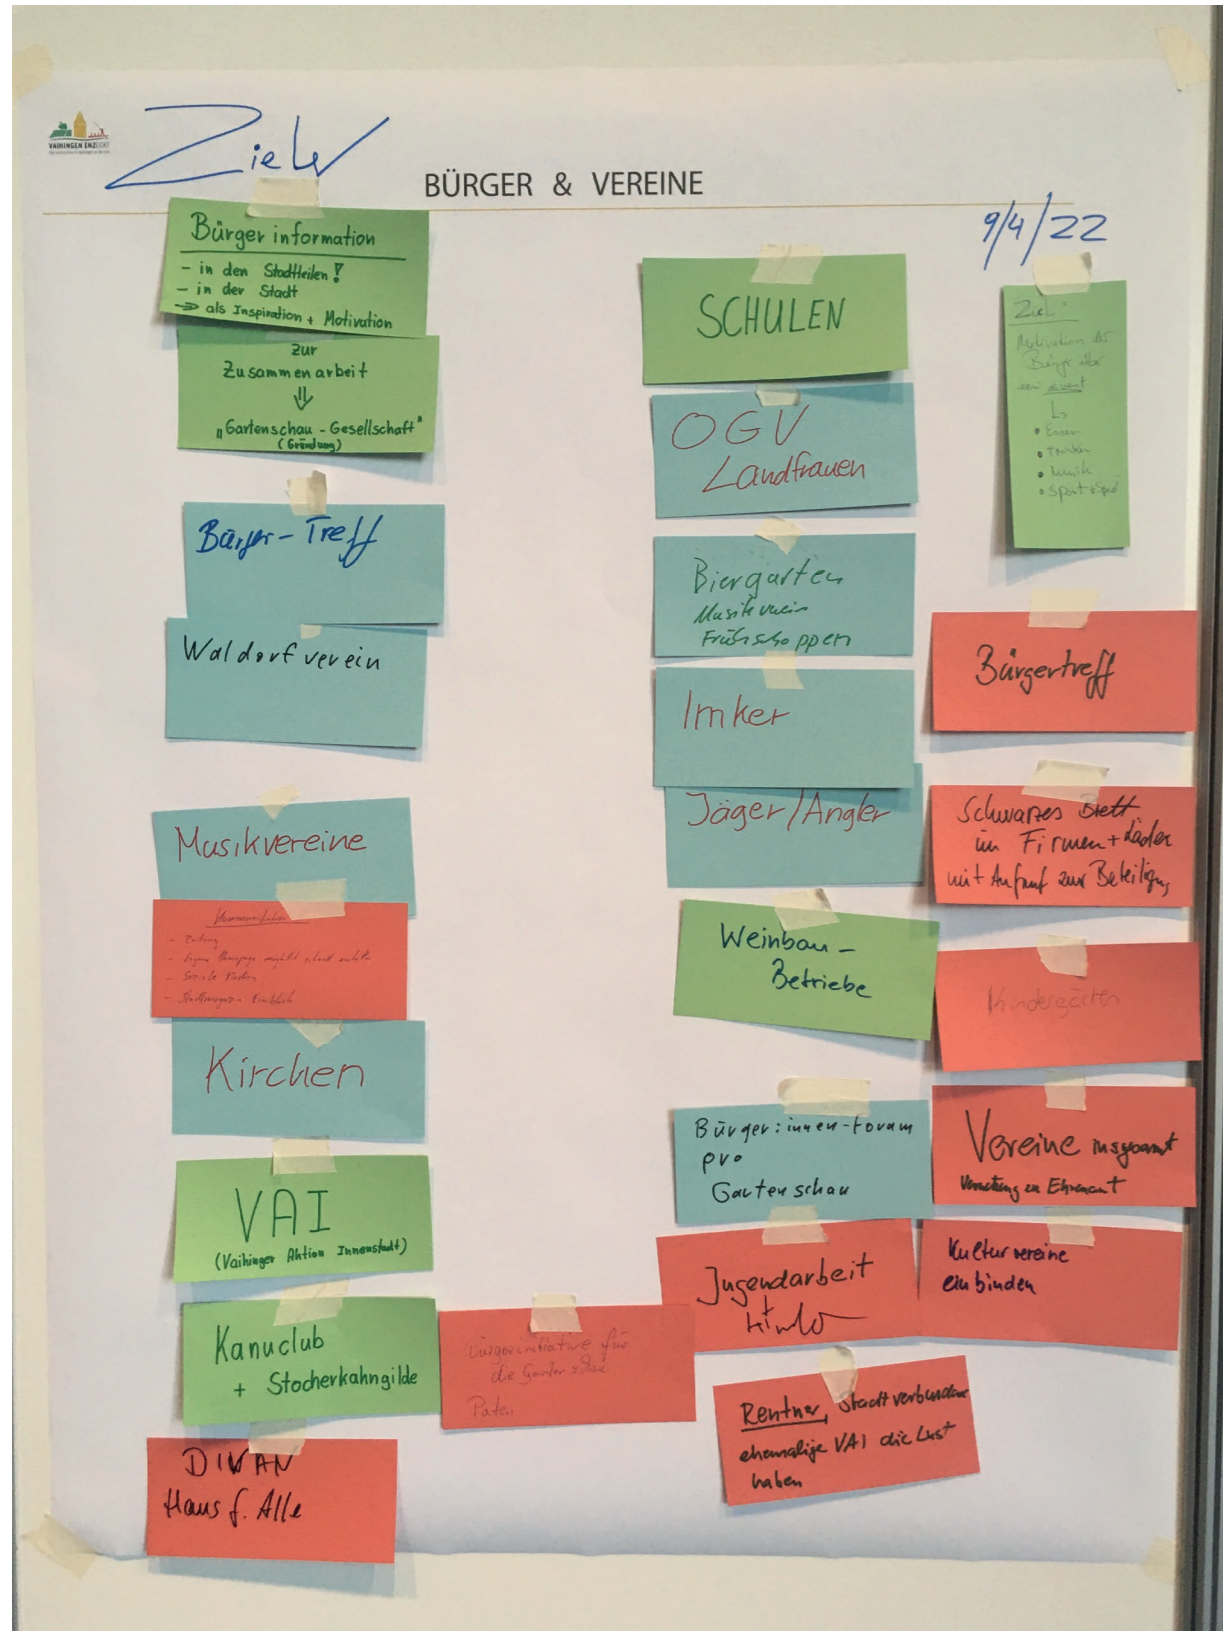 VAIHINGEN ENZ
Ziele
BÜRGER & VEREINE
9/4/22
Bürgerinformation
- in den Stadtteilen!
- in der Stadt
→ als Inspiration + Motivation
zur
Zusammenarbeit
⇓
„Gartenschau-Gesellschaft"
(Gründung)
Bürger-Treff
Waldorfverein
Musikvereine
Kommunikation
- Zeitung
- Eigene Homepage möglichst schnell
- Soziale Medien
- Stadtmagazin Einblick
Kirchen
VAI
(Vaihinger Aktion Innenstadt)
Kanuclub
+ Stocherkahngilde
DIVAN
Haus f. Alle
Bürgerinitiative für
die Gartenschau
Paten
SCHULEN
OGV
Landfrauen
Biergarten
Musikverein
Frühschoppen
Imker
Jäger/Angler
Weinbau-
Betriebe
Bürger:innen-Forum
pro
Gartenschau
Jugendarbeit
+
Rentner, Stadtverbundene
ehemalige VAI die Lust
haben
Ziel
Motivation der
Bürger über
ein event
↳
• Essen
• Trinken
• Musik
• Sport + Spiel
Bürgertreff
Schwarzes Brett
in Firmen + Läden
mit Aufruf zur Beteiligung
Kindergärten
Vereine insgesamt
Vernetzung im Ehrenamt
Kulturvereine
einbinden